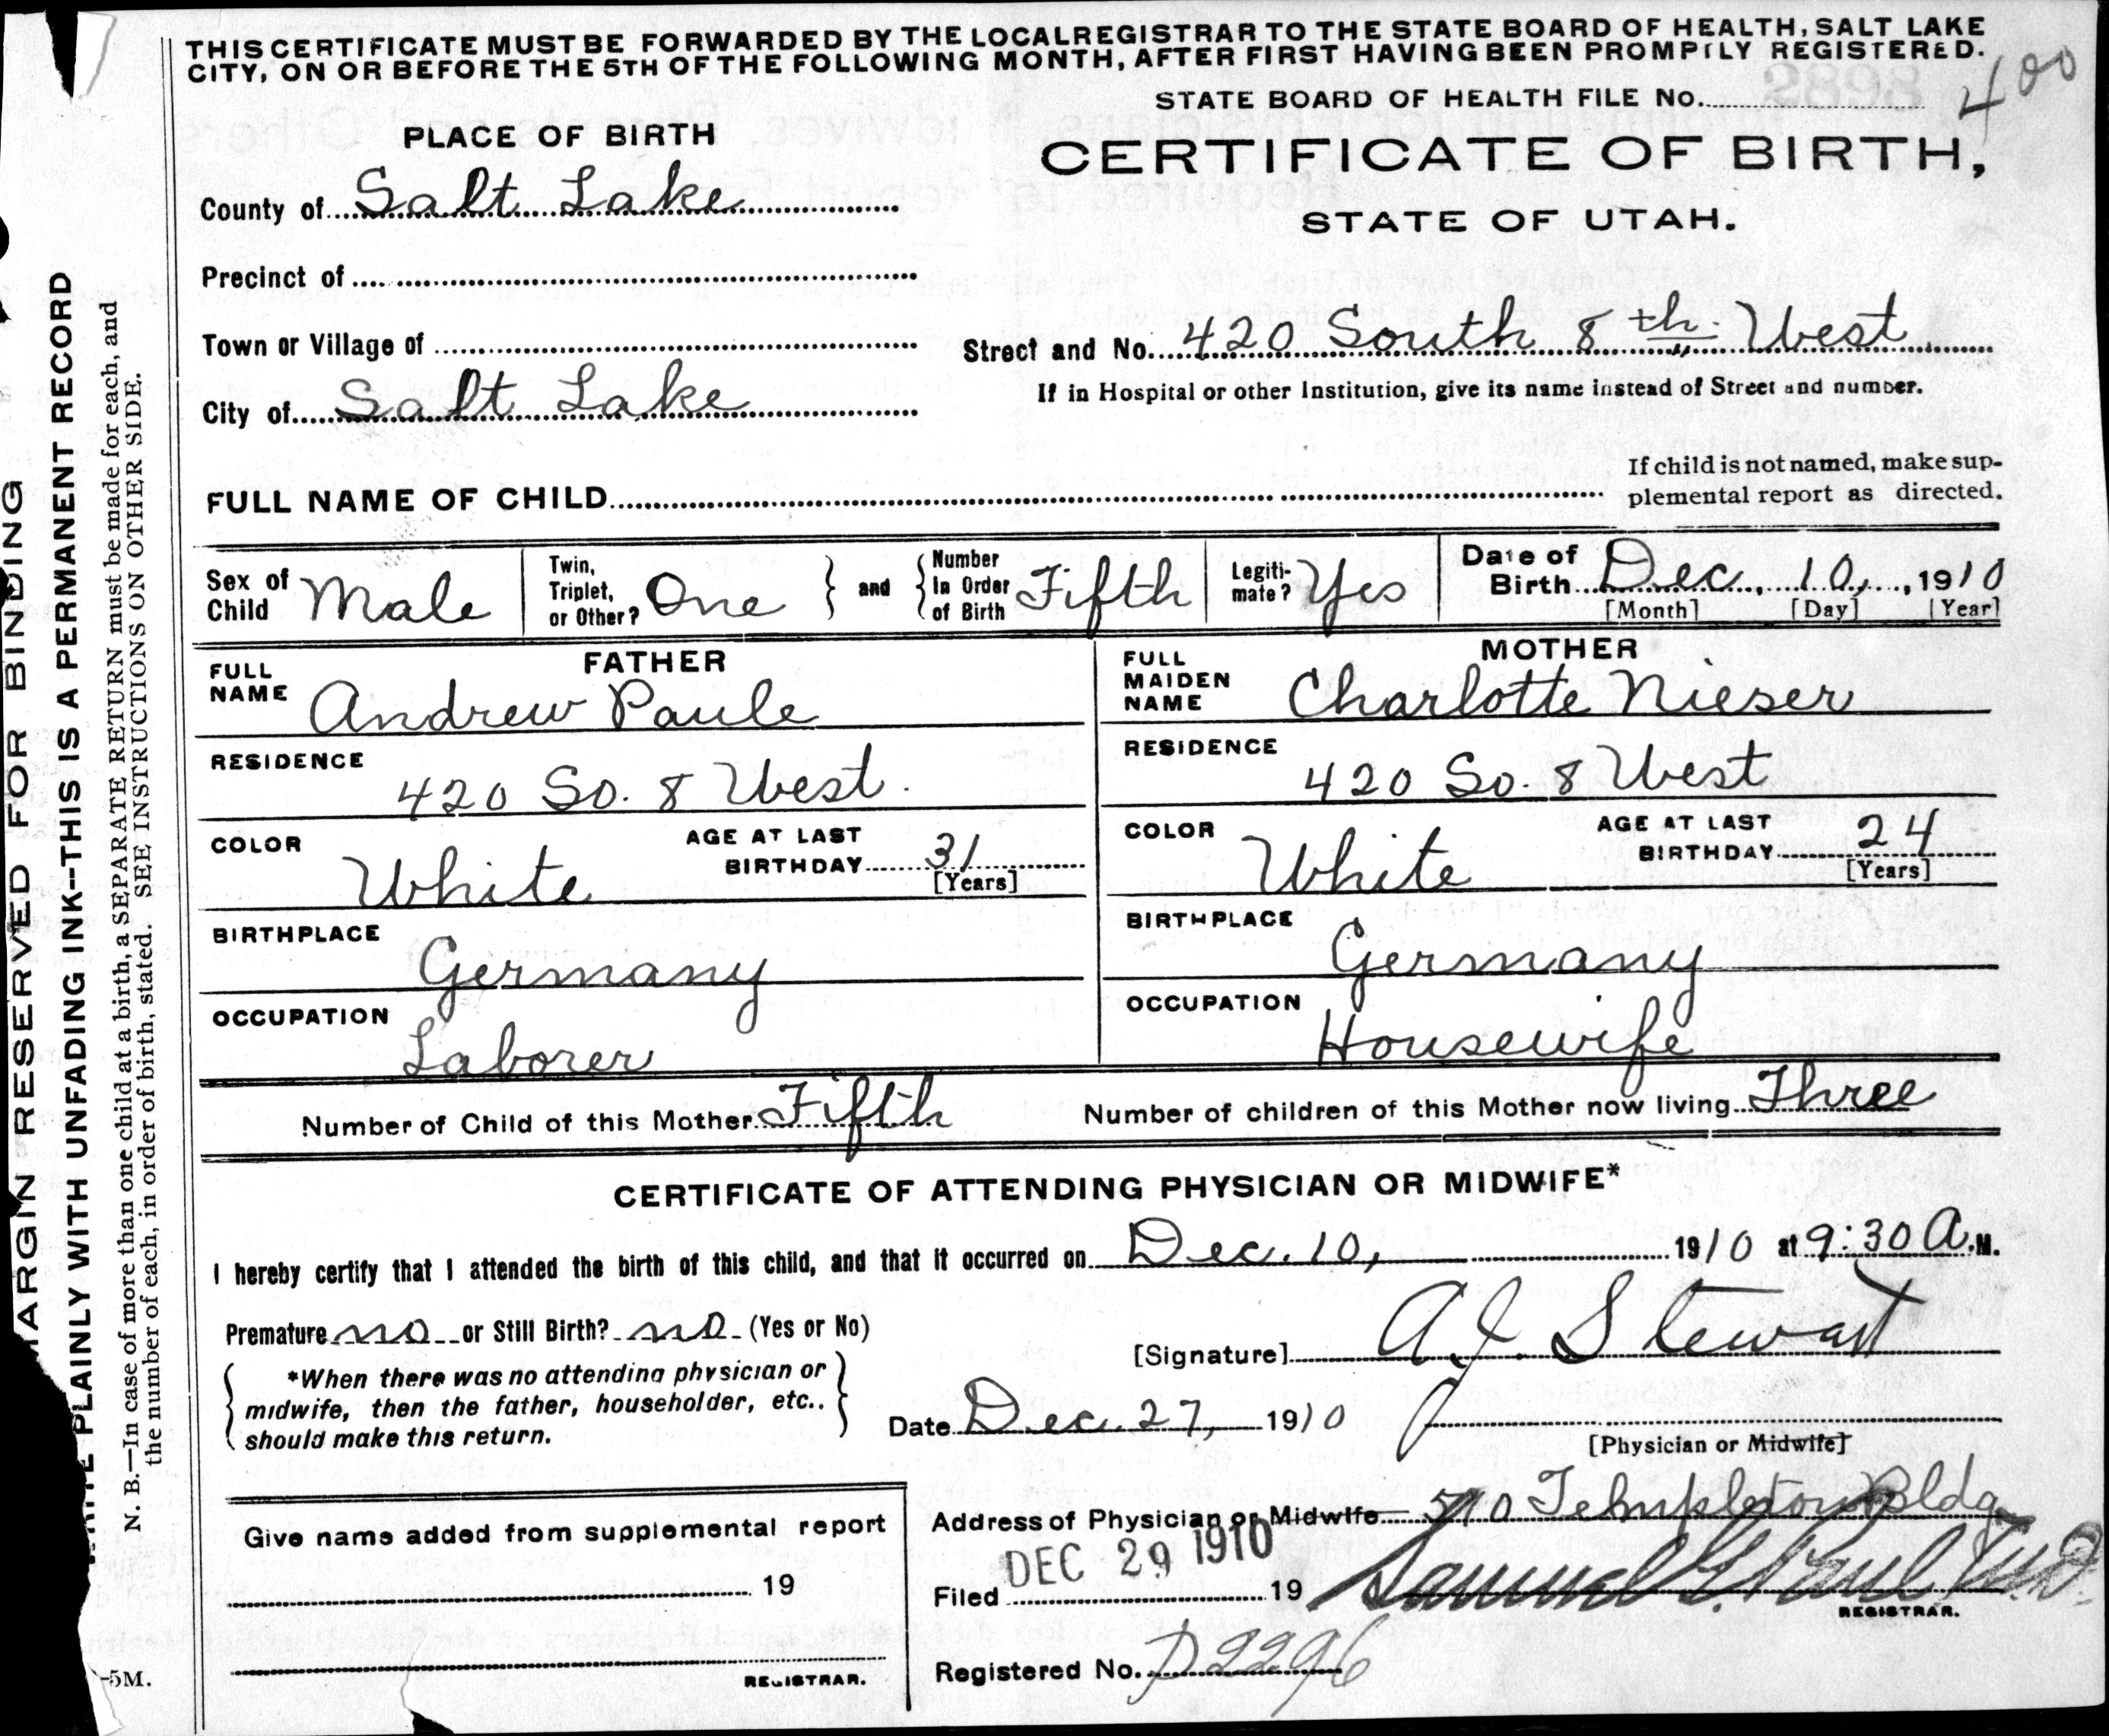 THIS CERTIFICATE MUST BE FORWARDED BY THE LOCAL REGISTRAR TO THE STATE BOARD OF HEALTH, SALT LAKE
CITY, ON OR BEFORE THE 5TH OF THE FOLLOWING MONTH, AFTER FIRST HAVING BEEN PROMPTLY REGISTERED.
400
STATE BOARD OF HEALTH FILE No.
PLACE OF BIRTH
CERTIFICATE OF BIRTH,
STATE OF UTAH.
County of Salt Lake
Precinct of
Town or Village of
Street and No. 420 South 8th West
If in Hospital or other Institution, give its name instead of Street and number.
City of Salt Lake
FULL NAME OF CHILD
If child is not named, make sup-
plemental report as directed.
Sex of Child Male
Twin, Triplet, or Other? One
and
Number In Order of Birth Fifth
Legiti-mate? Yes
Date of Birth Dec. 10, 1910
[Month] [Day] [Year]
FATHER
FULL NAME Andrew Paule
RESIDENCE 420 So. 8 West.
COLOR White
AGE AT LAST BIRTHDAY 31
[Years]
BIRTHPLACE Germany
OCCUPATION Laborer
MOTHER
FULL MAIDEN NAME Charlotte Nieser
RESIDENCE 420 So. 8 West
COLOR White
AGE AT LAST BIRTHDAY 24
[Years]
BIRTHPLACE Germany
OCCUPATION Housewife
Number of Child of this Mother Fifth
Number of children of this Mother now living Three
CERTIFICATE OF ATTENDING PHYSICIAN OR MIDWIFE*
I hereby certify that I attended the birth of this child, and that it occurred on Dec. 10, 1910 at 9:30 A.M.
Premature no or Still Birth? no (Yes or No)
*When there was no attending physician or
midwife, then the father, householder, etc.,
should make this return.
[Signature] A J Stewart
Date Dec. 27, 1910
[Physician or Midwife]
Address of Physician or Midwife 510 Templeton Bldg
Give name added from supplemental report
19
REGISTRAR.
Filed DEC 29 1910 19 Samuel G. Paul M.D.
REGISTRAR.
Registered No. D2296
-5M.
MARGIN RESERVED FOR BINDING
PLAINLY WITH UNFADING INK--THIS IS A PERMANENT RECORD
N. B.—In case of more than one child at a birth, a SEPARATE RETURN must be made for each, and
the number of each, in order of birth, stated. SEE INSTRUCTIONS ON OTHER SIDE.